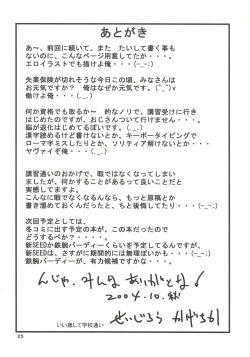 あとがき
あ～、前回に続いて、また たいして書く事も
ないのに、こんなページ用意してたか・・・。
エロイラストでも描けよ俺・・・(-_-;)
失業保険が切れそうな今日この頃、みなさんは
お元気ですか？ 俺はなぜか元気です。(^_^)v
働けよ俺・・・(._.)
何か資格でも取るか～ 的なノリで、講習受けに行き
はじめたのですが、おじさんついて行けません・・・。
脳が退化しはじめてるぽいです。(._.)
漢字読めるけど書けないとか、キーボータイピングで
ローマ字ミスしたりとか、ソリティア解けないとか・・・
ヤヴァイぞ俺・・・(._.)
講習通いのおかげで、暇ではなくなってしまい
ましたが、何かすることがあるって良いことだと
実感してますよ。
こんなに暇でなくなるなら、もっと原稿とか
書き溜めておくんだったと、ちと後悔してたり・・・(-_-;)
次回予定としては、
冬コミに出す予定の本が、この本だったので
どうするべか？・・・。
新SEEDか鉄腕バーディーくらいを予定してるんですが、
新SEEDは、さすがに期間的には無理ぽいかも・・・(-_-;)
鉄腕バーディーが、有力候補ですかな・・・。
んじゃ、みんな ありがとな!
2004.10.
せいじろう
いい歳して学校通い
25